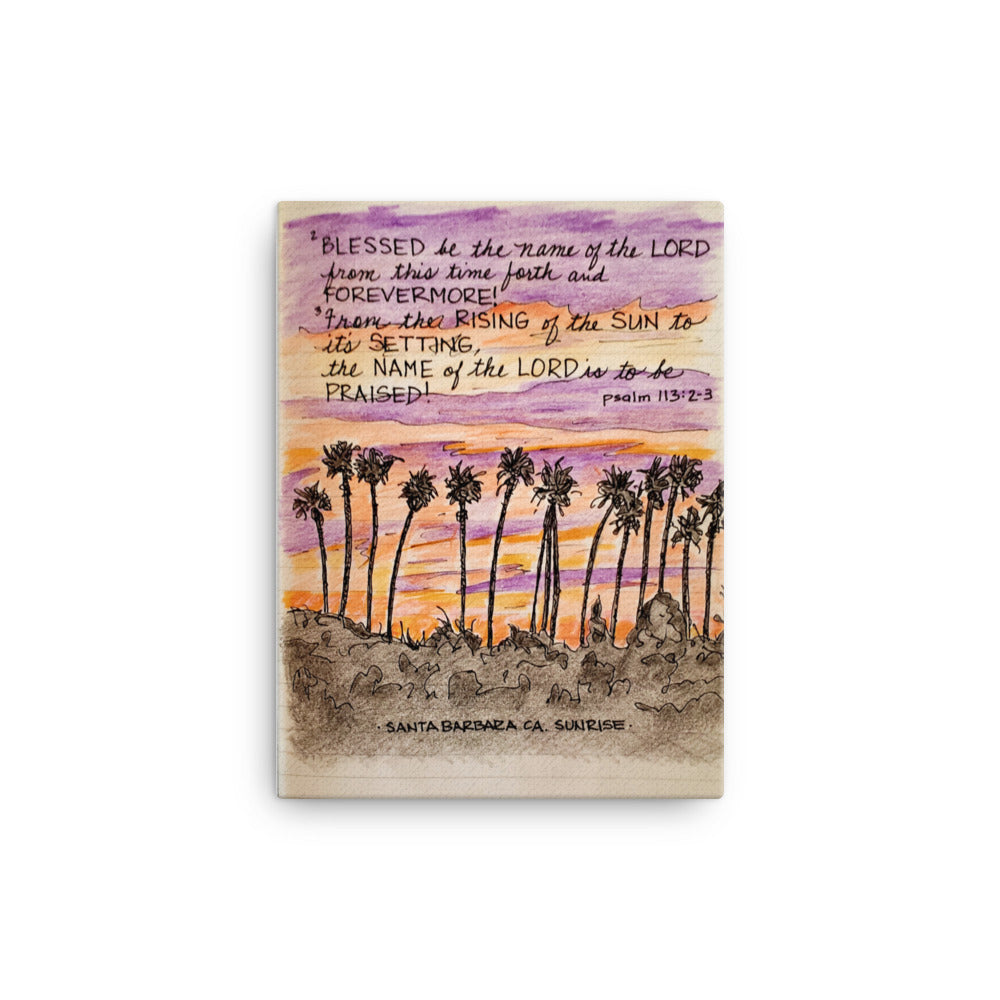 2 BLESSED be the name of the LORD
from this time forth and
FOREVERMORE!
3 From the RISING of the SUN to
it's SETTING,
the NAME of the LORD is to be
PRAISED!
psalm 113:2-3
· SANTA BARBARA CA. SUNRISE ·